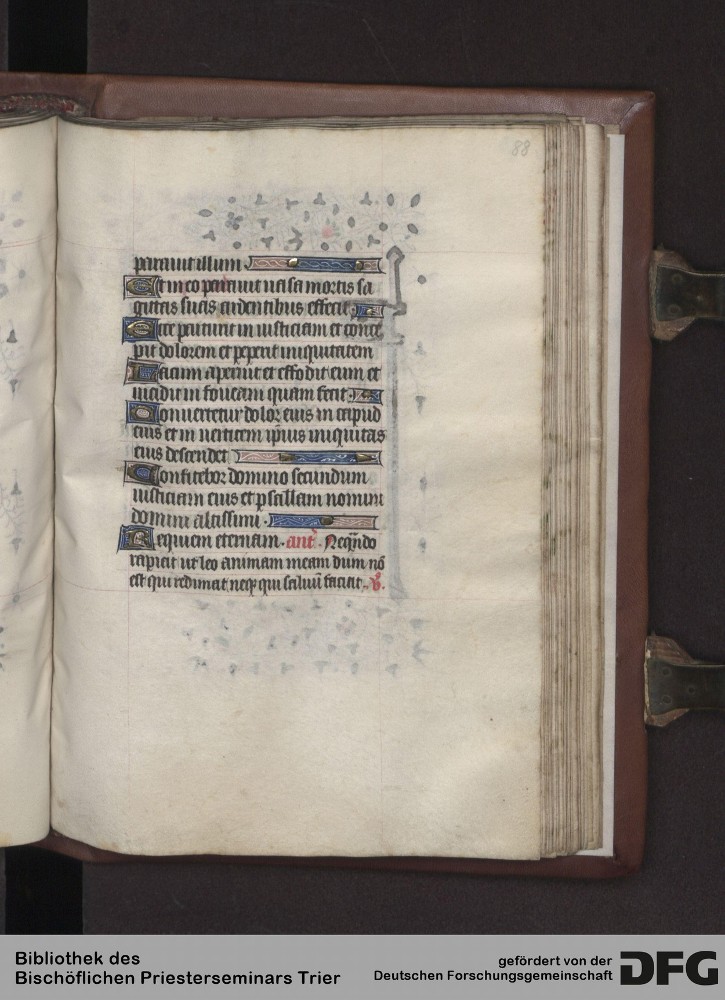 88
parauit illum
Et in eo parauit uasa mortis sa
gittas suas ardentibus effecit
Ecce parturit in iusticiam et conce
pit dolorem et peperit iniquitatem
Lacum aperuit et effodit eum et
incidit in foueam quam fecit
Conuertetur dolor eius in caput
eius et in uerticem ipsius iniquitas
eius descendet
Confitebor domino secundum
iusticiam eius et psallam nomini
domini altissimi
Requiem eternam. ant. Neqndo
rapiat ut leo animam meam dum nō
est qui redimat neqz qui saluū faciat. V.
Bibliothek des
Bischöflichen Priesterseminars Trier
gefördert von der
Deutschen Forschungsgemeinschaft
DFG